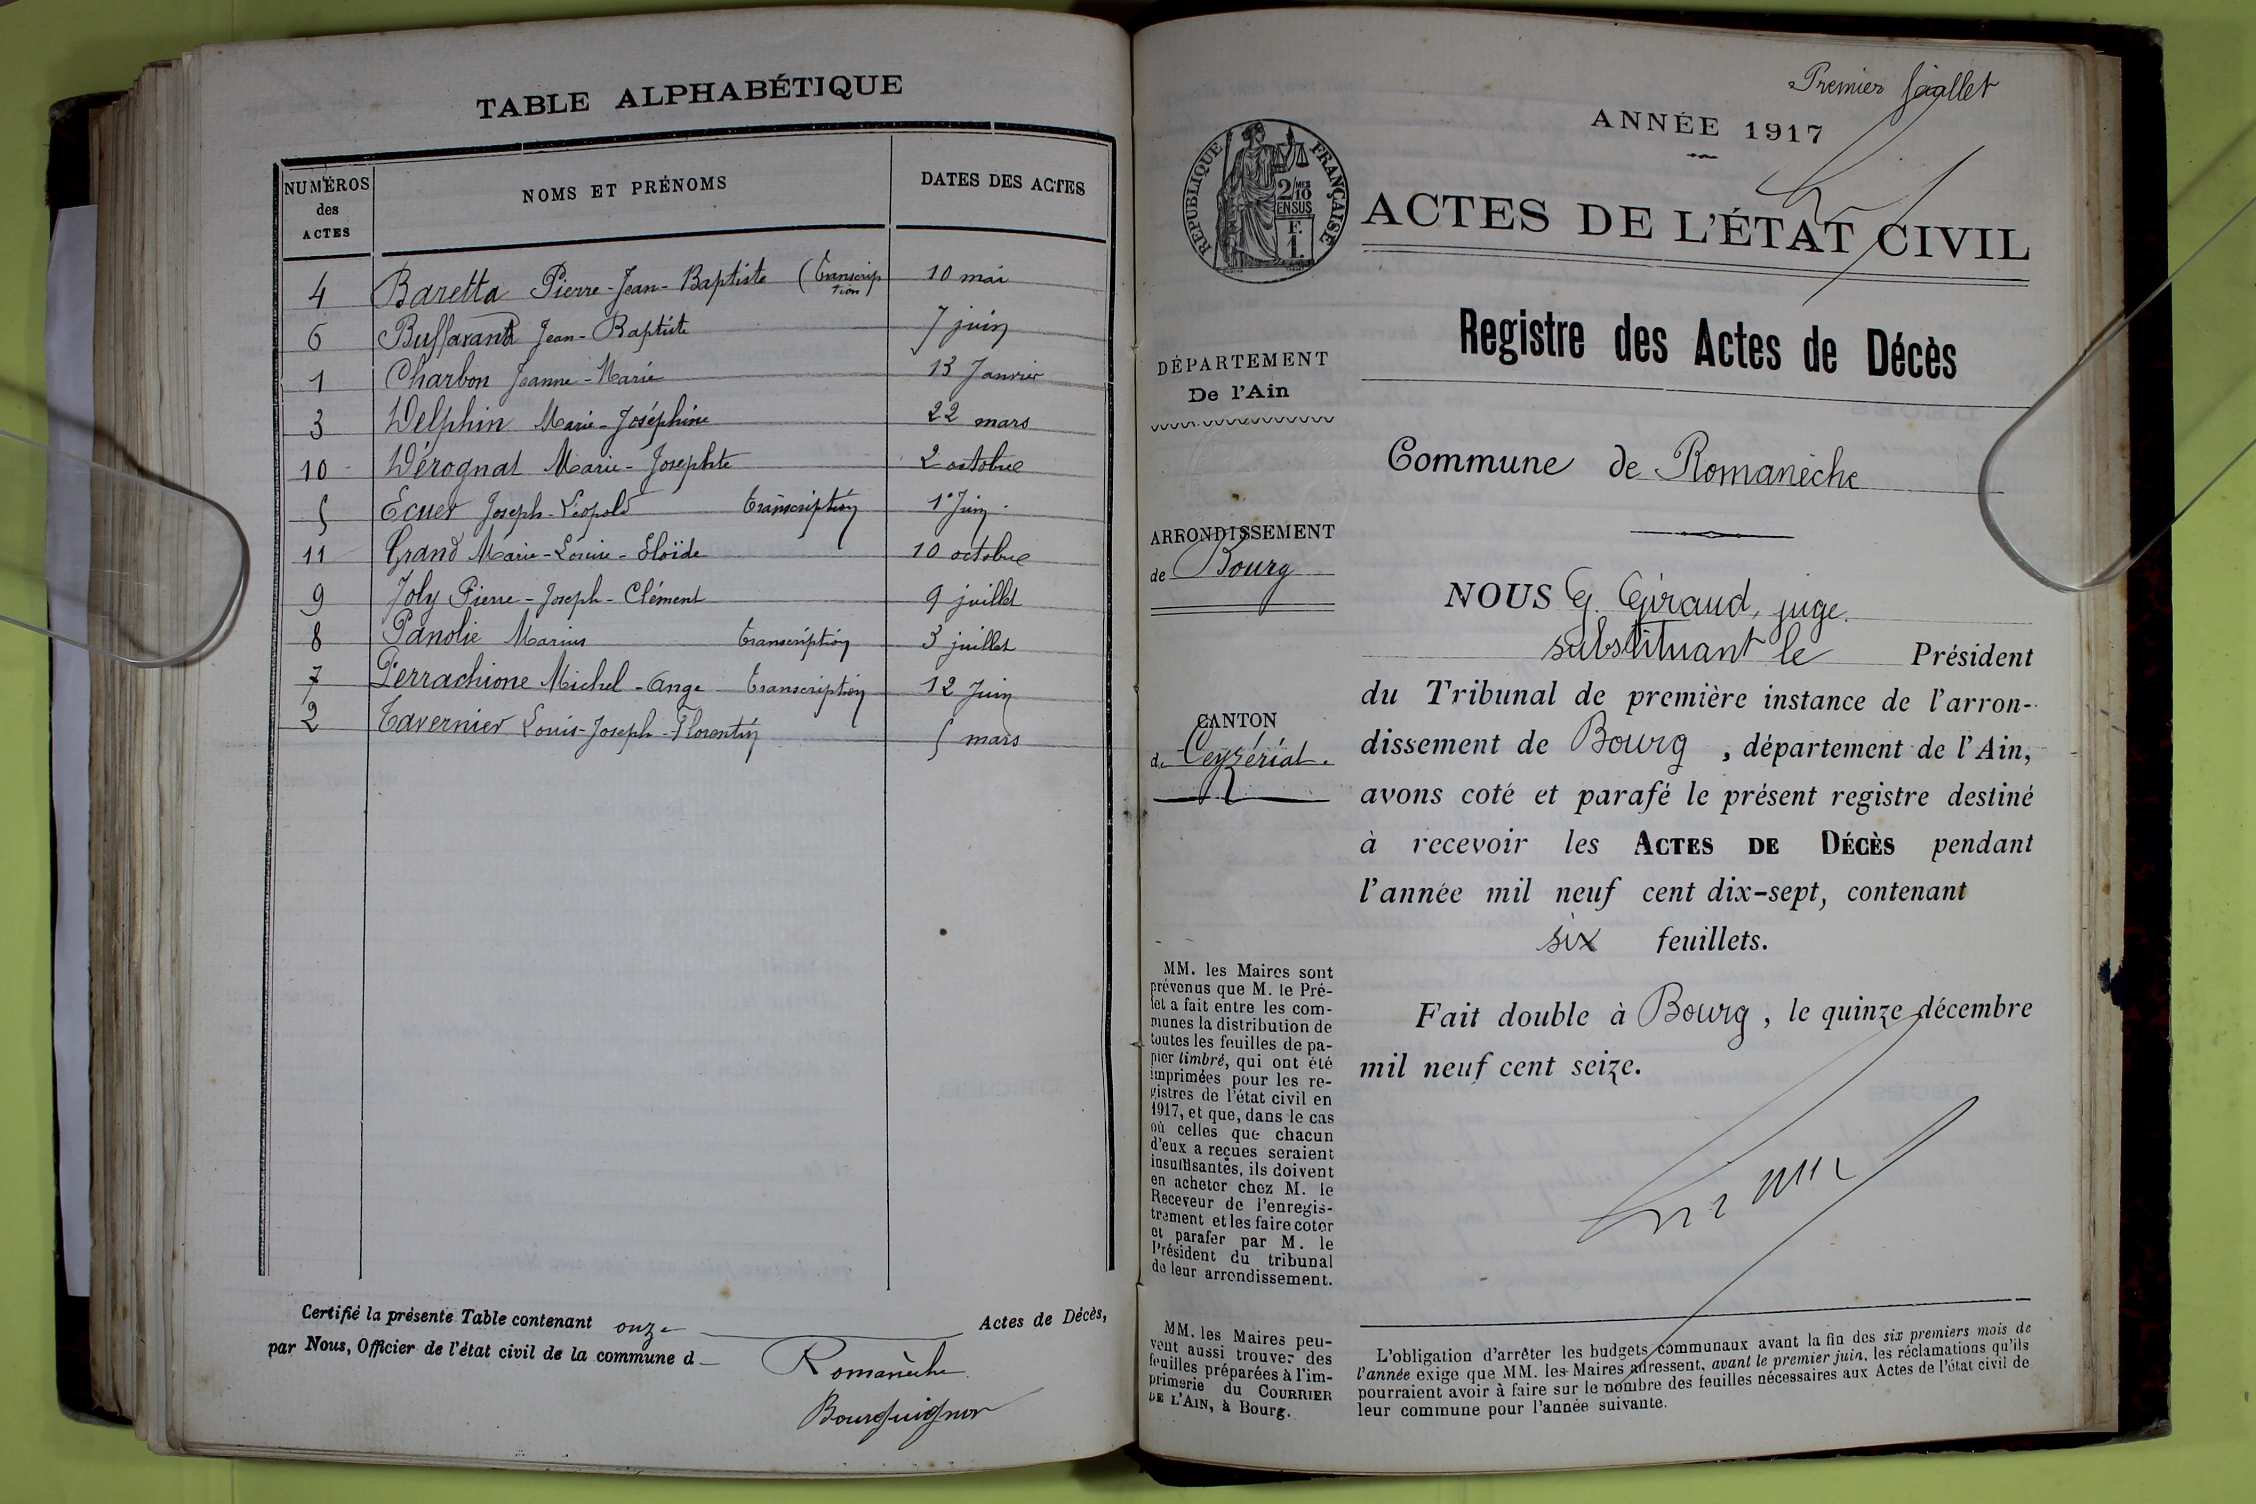 TABLE ALPHABÉTIQUE
NUMÉROS des ACTES
NOMS ET PRÉNOMS
DATES DES ACTES
4 Baretta Pierre-Jean-Baptiste (transcription) 10 mai
6 Buffavand Jean-Baptiste 7 juin
1 Charbon Jeanne-Marie 13 Janvier
3 Delphin Marie-Joséphine 22 mars
10 Dérognat Marie-Josephte 2 octobre
5 Ecuer Joseph-Léopold transcription 1er Juin
11 Grand Marie-Louise-Eloïde 10 octobre
9 Joly Pierre-Joseph-Clément 9 juillet
8 Panolie Marius transcription 3 juillet
7 Perrachione Michel-Ange transcription 12 Juin
2 Tavernier Louis-Joseph-Florentin 5 mars
Certifié la présente Table contenant onze Actes de Décès,
par Nous, Officier de l'état civil de la commune d
Romanèche
Bourguignon
Premier feuillet
ANNÉE 1917
RÉPUBLIQUE FRANÇAISE
2/10
EN SUS
F.
1.
ACTES DE L'ÉTAT CIVIL
Registre des Actes de Décès
DÉPARTEMENT
De l'Ain
ARRONDISSEMENT
de Bourg
CANTON
de Ceyzériat.
MM. les Maires sont
prévenus que M. le Pré-
fet a fait entre les com-
munes la distribution de
toutes les feuilles de pa-
pier timbré, qui ont été
imprimées pour les re-
gistres de l'état civil en
1917, et que, dans le cas
où celles que chacun
d'eux a reçues seraient
insuffisantes, ils doivent
en acheter chez M. le
Receveur de l'enregis-
trement et les faire coter
et parafer par M. le
Président du tribunal
de leur arrondissement.
MM. les Maires peu-
vent aussi trouver des
feuilles préparées à l'im-
primerie du COURRIER
DE L'AIN, à Bourg.
Commune de Romanèche
NOUS G. Giraud, juge
substituant le Président
du Tribunal de première instance de l'arron-
dissement de Bourg, département de l'Ain,
avons coté et parafé le présent registre destiné
à recevoir les ACTES DE DÉCÈS pendant
l'année mil neuf cent dix-sept, contenant
six feuillets.
Fait double à Bourg, le quinze décembre
mil neuf cent seize.
L'obligation d'arrêter les budgets communaux avant la fin des six premiers mois de
l'année exige que MM. les Maires adressent, avant le premier juin, les réclamations qu'ils
pourraient avoir à faire sur le nombre des feuilles nécessaires aux Actes de l'état civil de
leur commune pour l'année suivante.